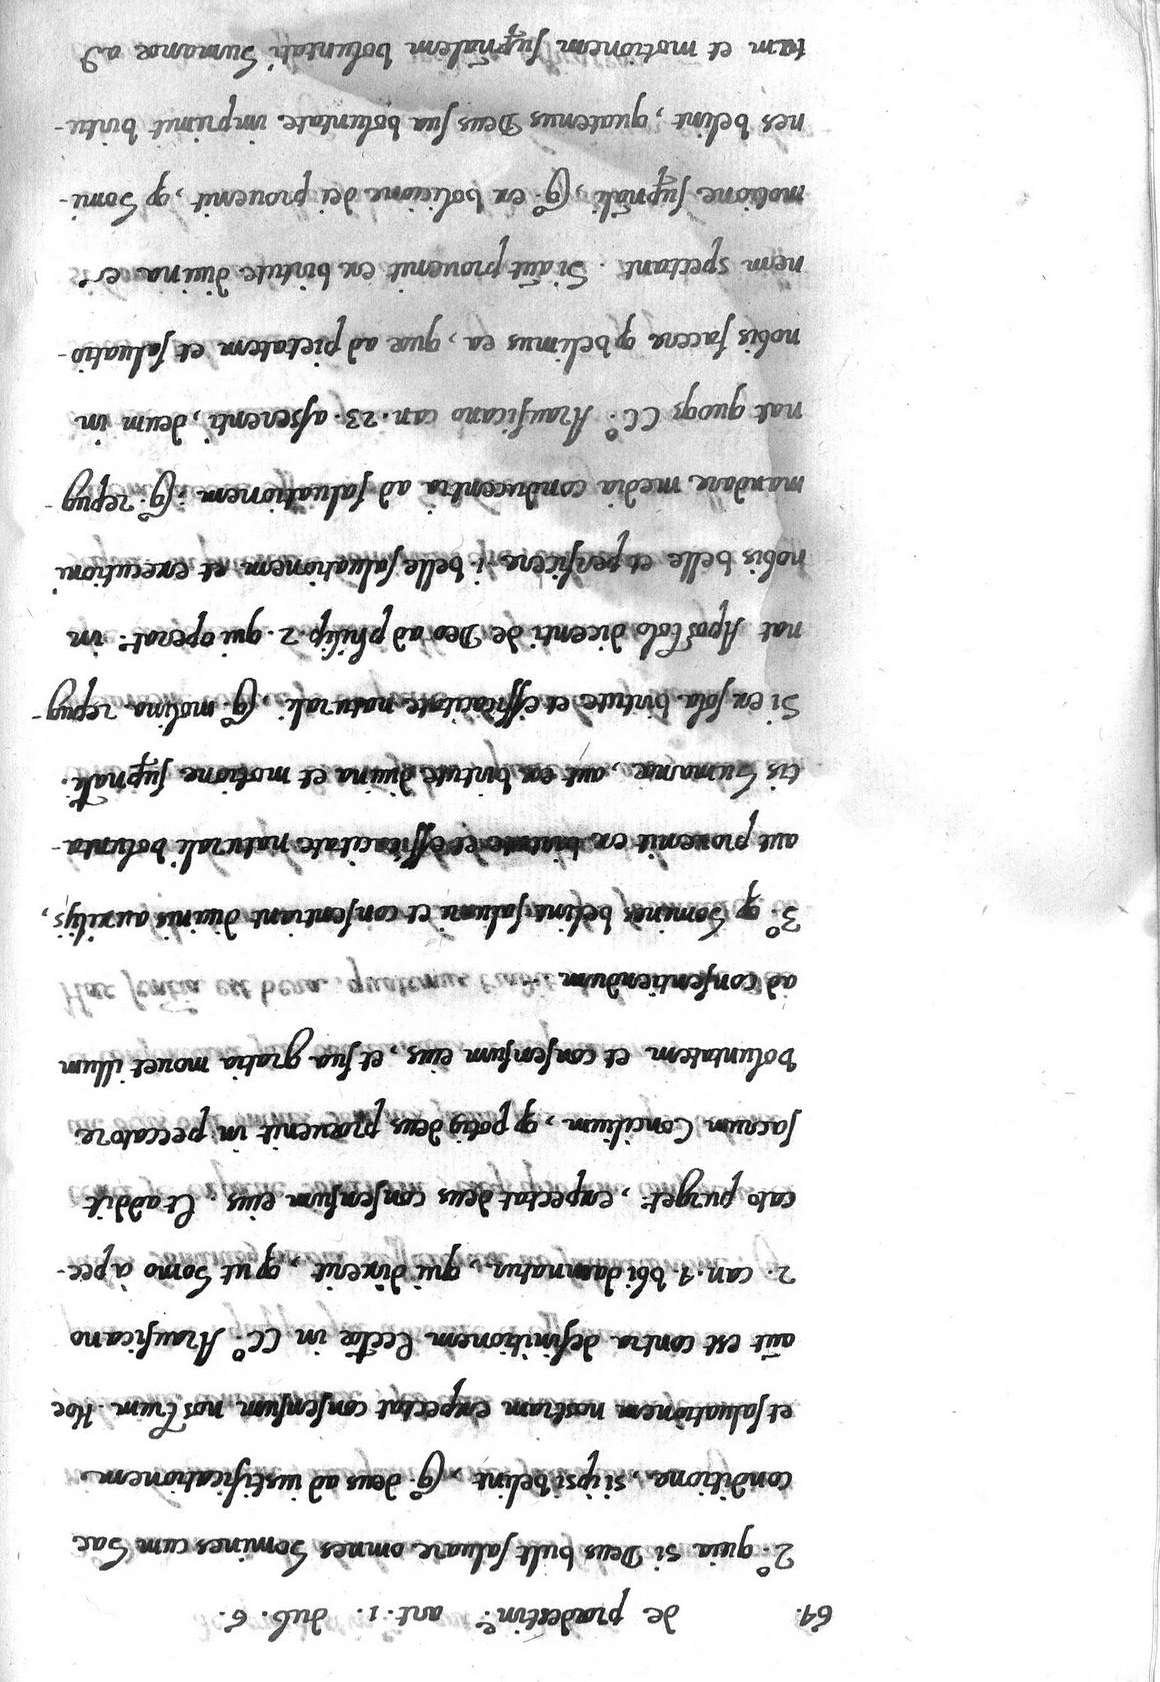 64. de prædestin.e art. 1. dub. 6.
2.º quia si Deus vult saluare omnes homines cum hac
conditione, si ipsi velint, g.º deus ad iustificationem
et saluationem nostram expectat consensum nostrum. Hoc
aũt est contra definitionem Ecctæ in CC.º Arausicano
2. can. 1. vbi damnatur, qui dixerit, qp ut homo à pec-
cato purget.r, expectat deus consensum eius. Et addit
sacrum Concilium, qp potiq deus præuenit in peccatore
voluntatem et consensum eius, et sua gratia mouet illum
ad consentiendum.
3.º qp homines velint saluari et consentiant diuinis auxilijs,
aut prouenit ex virtute et efficacitate naturali volunta-
tis humanæ, aut ex virtute diuina et motione supnãli.
Si ex sola virtute et efficacitate naturali, g.º molina repug-
nat Apostolo dicenti de Deo ad philip. 2. qui operat.r in
nobis velle et perficere .i. velle saluationem et executioni
mandare media conducentia ad saluationem; g.º repug-
nat quoqs CC.º Arausicano can. 23. asserenti, deum in
nobis facere qp velimus ea, quæ ad pietatem et saluatio-
nem spectant. Si aũt prouenit ex virtute diuina et
motione supnãli, g.º ex volicione dei prouenit, qp homi-
nes velint, quatenus Deus sua voluntate imprimit virtu-
tem et motionem supnãlem voluntati humanæ ad